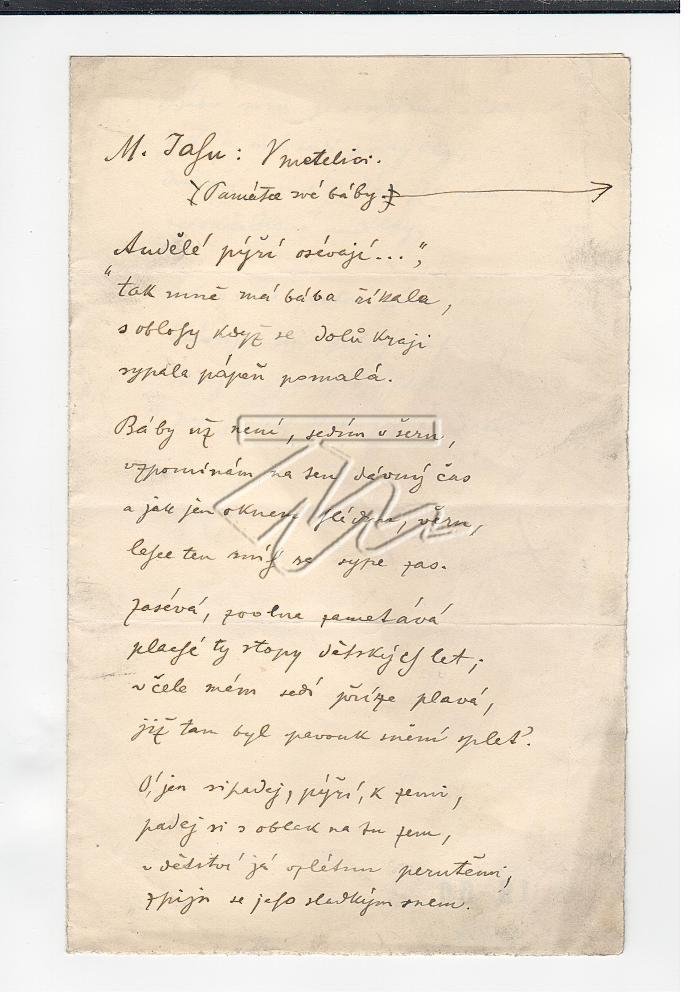 M. Jahn: V metelici.
(Památce své báby.)
Andělé pýří osévají...",
"tak mně má bába říkala,
s oblohy když se dolů kraji
sypala pápeř pomalá.
Báby už není, sedím v šeru,
vzpomínám na ten dávný čas
a jak jen oknem hlédnu, věru,
lehce ten sníh se sype zas.
Zasévá, zvolna zametává
plaché ty stopy dětských let;
v čele mém sedí příze plavá,
již tam byl pavouk snění splet'.
Ó, jen si padej, pýří, k zemi,
padej si s oblak na tu zem,
v dětství já vzlétnu perutěmi,
zpiju se jeho sladkým snem.